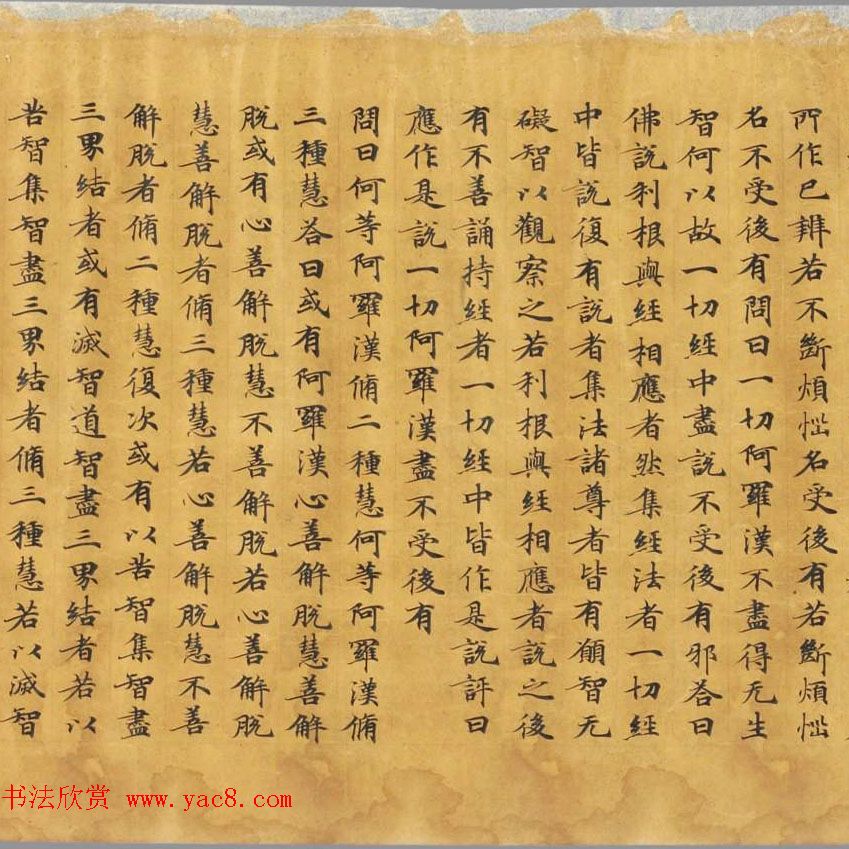 所作已辨若不斷煩惱名受後有若斷煩惱
名不受後有問曰一切阿羅漢不盡得无生
智何以故一切經中盡說不受後有邪荅曰
佛說利根與經相應者然集經法者一切經
中皆說復有說者集法諸尊者皆有願智无
礙智以觀察之若利根與經相應者說之後
有不善誦持經者一切經中皆作是說評曰
應作是說一切阿羅漢盡不受後有
問曰何等阿羅漢脩二種慧何等阿羅漢脩
三種慧荅曰或有阿羅漢心善解脫慧善解
脫或有心善解脫慧不善解脫若心善解脫
慧善解脫者脩三種慧若心善解脫慧不善
解脫者脩二種慧復次或有以苦智集智盡
三界結者或有滅智道智盡三界結者若以
苦智集智盡三界結者脩三種慧若以滅智
书法欣赏 www.yac8.com